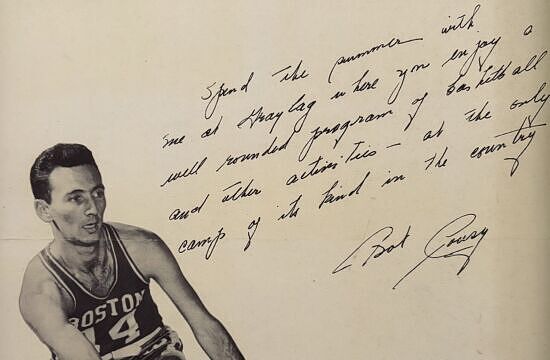 Spend the summer with
me at Graylag where you enjoy a
well rounded program of basketball
and other activities — at the only
camp of its kind in the country
Bob Cousy
BOSTON
14